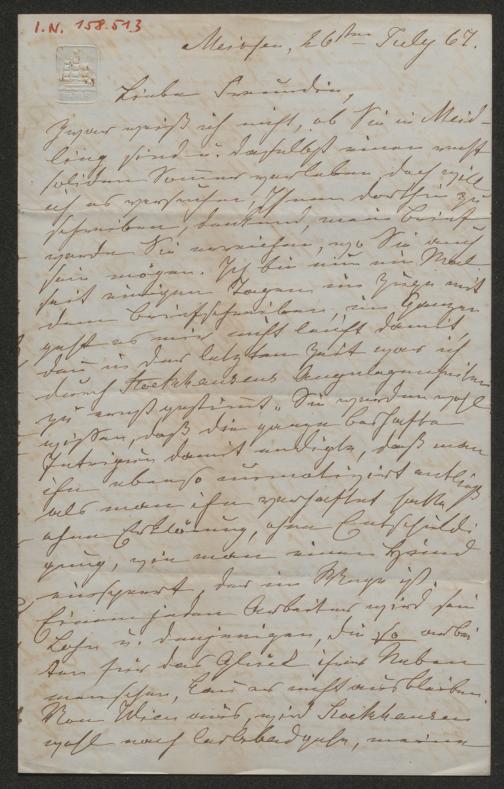 I.N. 158.513
Meissen, 26ten July 67.
Liebe Freundin,
Zwar weiß ich nicht, ob Sie in Meid-
ling sind u. daselbst einen recht
soliden Sommer verleben, doch will
ich es versuchen, Ihnen dorthin zu
schreiben, denkend, mein Brief
werde Sie erreichen, wo Sie auch
sein mögen. Ich bin nun ein Mal
seit einigen Tagen im Zuge mit
dem Briefschreiben, im Ganzen
geht es mir nicht leicht damit
denn in der letzten Zeit war ich
durch Stockhausens Angelegenheiten
zu ernst gestimmt. Sie werden wohl
wissen, daß die ganze boshafte
Intrigue damit endigte, daß man
ihn ebenso unmotivirt entließ
als man ihn verhaftet hatte,
ohne Erklärung, ohne Entschuldi-
gung, wie man einen Hund
einsperrt, der im Wege ist.
Einem jeden Arbeiter wird sein
Lohn u. denjenigen, die so arbei
ten für das Glück ihrer Neben
menschen, kann er nicht ausbleiben.
Von Wien aus, wird Stockhausen
wohl nach Carlsbad gehn, meine